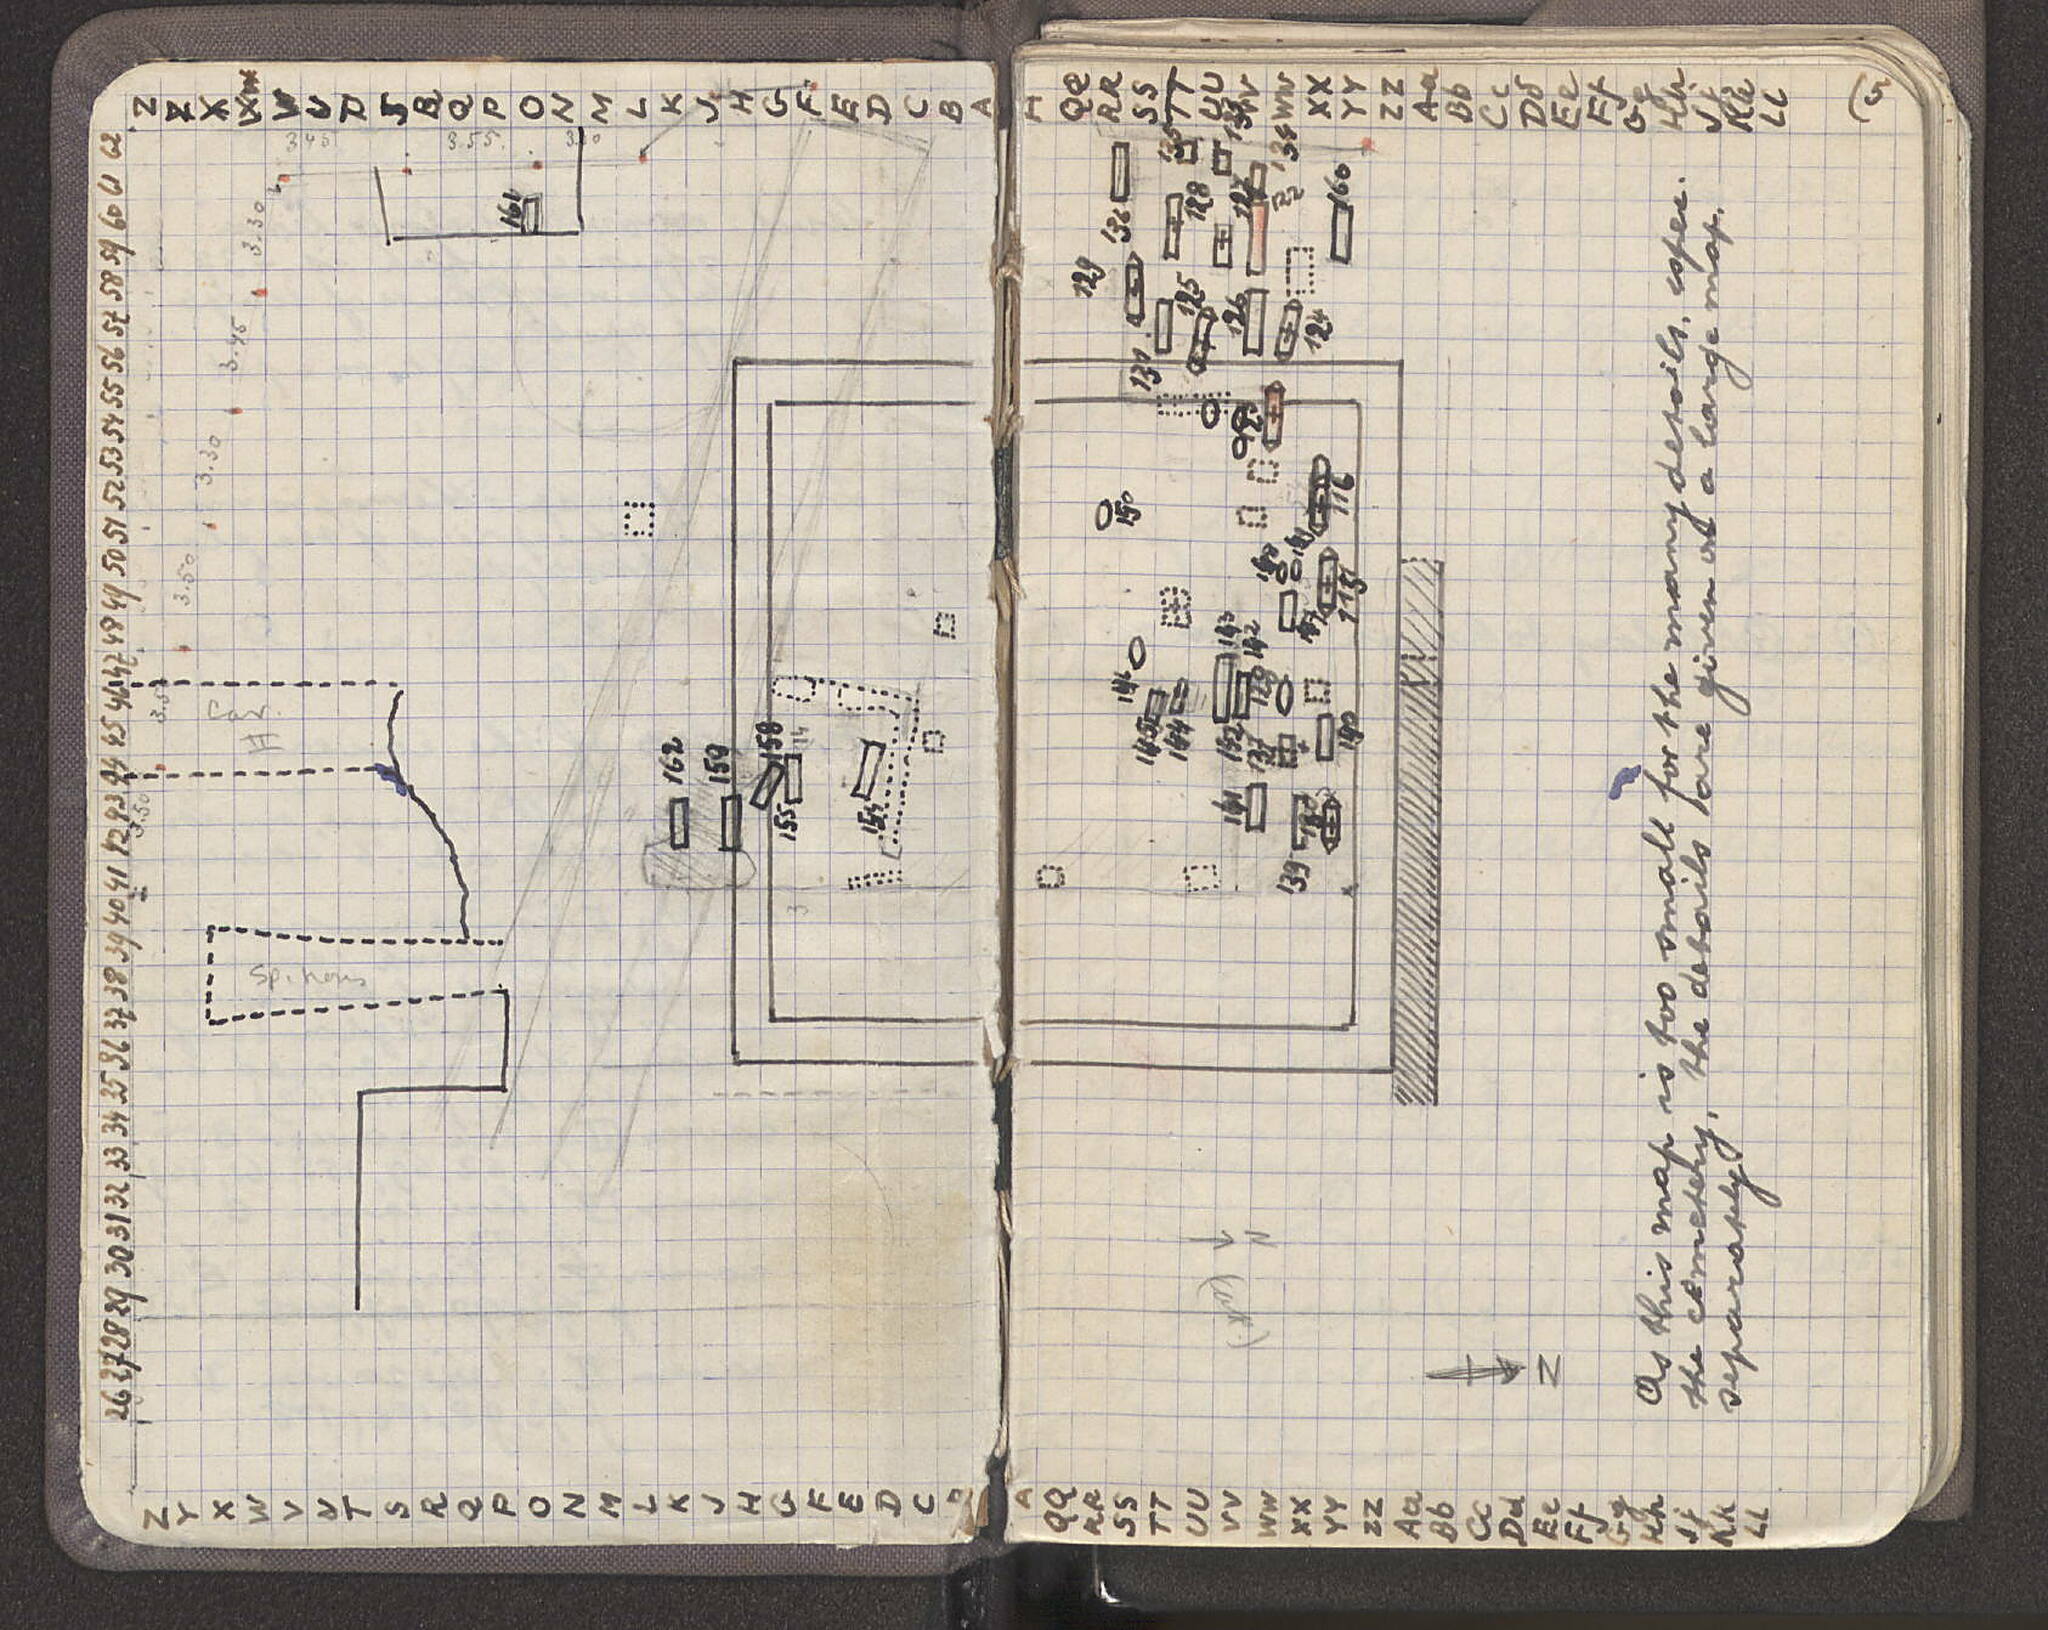 Z Z X W V U T S R Q P O N M L K J H G F E D C B A
A QQ RR SS TT UU VV WW XX YY ZZ Aa Bb Cc Dd Ee Ff Gg Hh Jj Kk LL
5
62 61 60 59 58 57 56 55 54 53 52 51 50 49 48 47 46 45 44 43 42 41 40 39 38 37 36 35 34 33 32 31 30 29 28 27 26
3.45
3.55
3.30
3.45
3.30
3.50
3.50
161
162
159
158
14
155
154
3
H
136
128
127
134
160
129
125
126
124
131
116
150
115
143
142
146
145
144
152
137
140
141
139
N
N
As this map is too small for the many deposits, espec.
the cemetery, the details are given on a large map,
separately.
Z Y X W V U T S R Q P O N M L K J H G F E D C B
A QQ RR SS TT UU VV WW XX YY ZZ Aa Bb Cc Dd Ee Ff Gg Hh Jj Kk LL